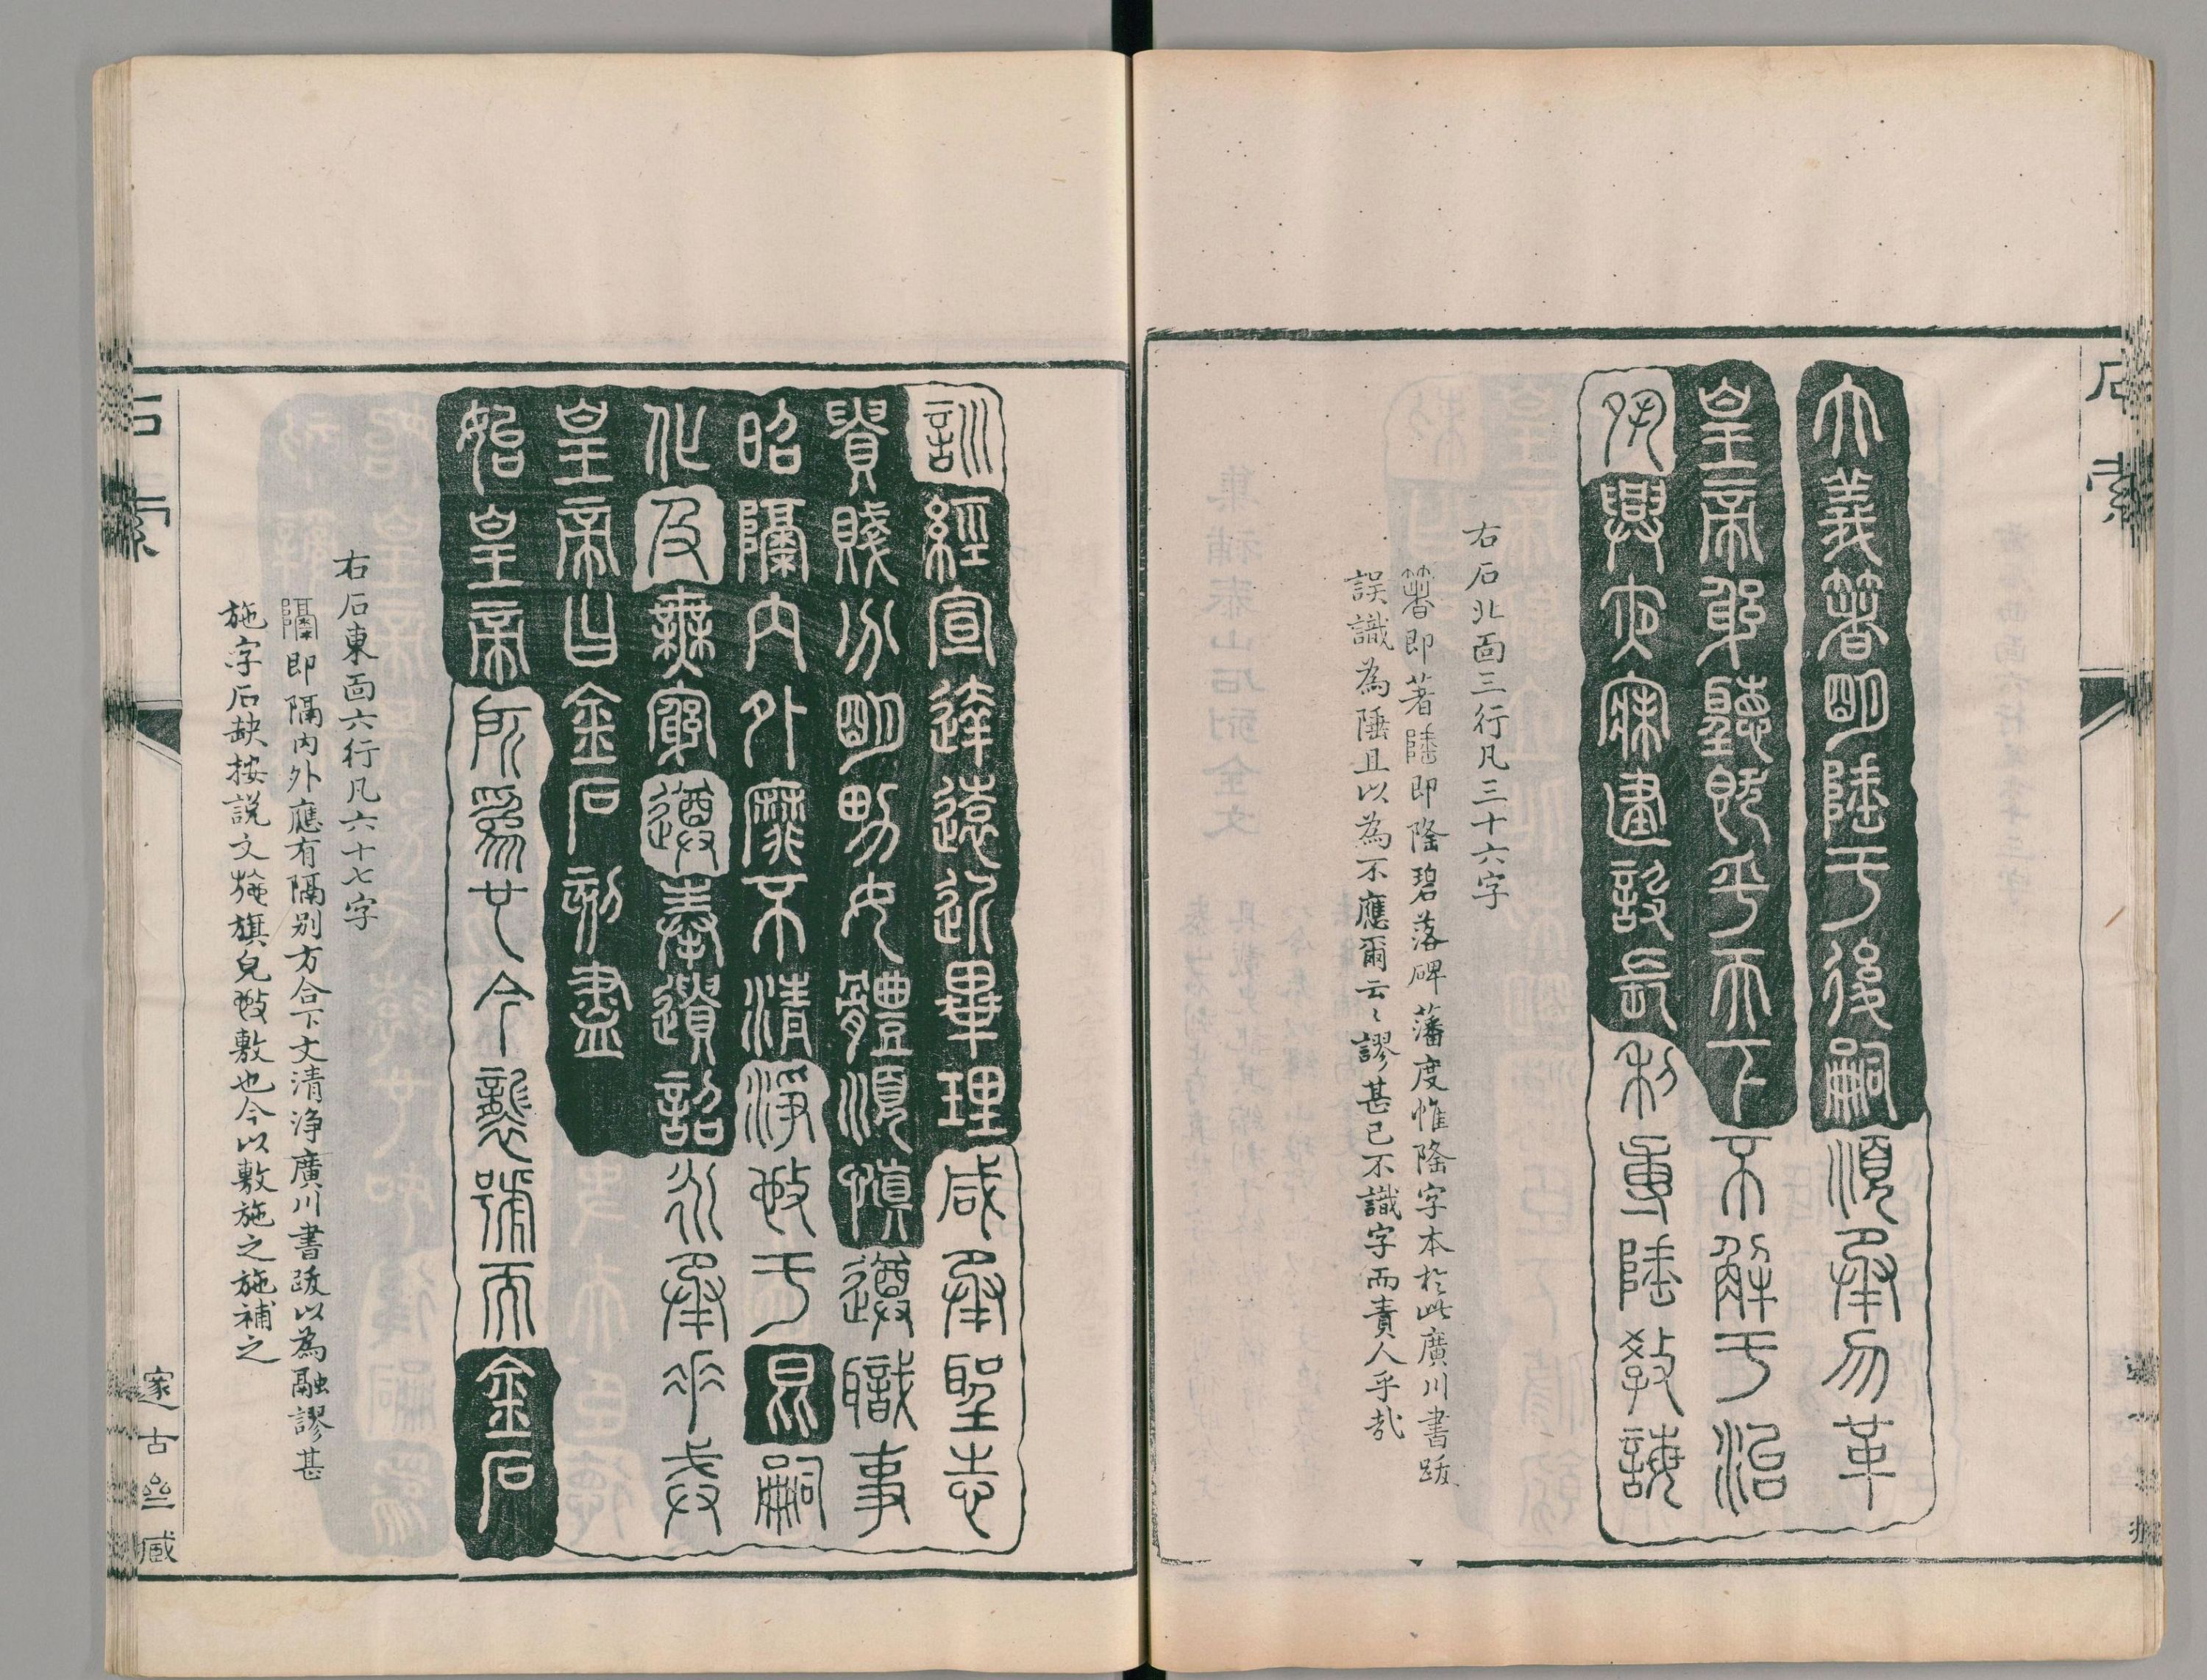 石索
大義箸明隆于後嗣順承勿革
皇帝躬聽既平天下不解于治
夙興夜寐建設長利專隆教誨
右石北面三行凡三十六字
箸即著隆即隆碧落碑藩度惟隆字本於此廣川書跋
誤識為陲且以為不應爾云〻謬甚己不識字而責人乎哉
訓經宣達遠近畢理咸承聖志
貴賤分明男女體順慎遵職事
昭隔內外靡不清淨㪉于昆嗣
化及無窮遵奉遺詔永承垂戒
皇帝曰金石刻盡
始皇帝所為也今襲號而金石
右石東面六行凡六十七字
隔即隔內外應有隔別方合下文清淨廣川書跋以為融謬甚
施字石缺按說文施旗皃㪉敷也今以敷施之施補之
石索
邃古齋藏